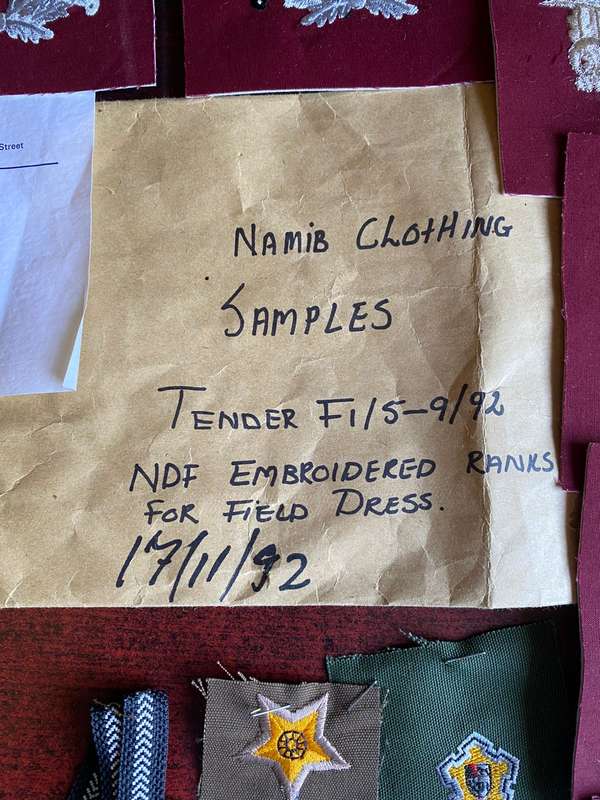 Street
NAMIB CLOTHING
SAMPLES
TENDER F1/5-9/92
NDF EMBROIDERED RANKS
FOR FIELD DRESS.
17/11/92